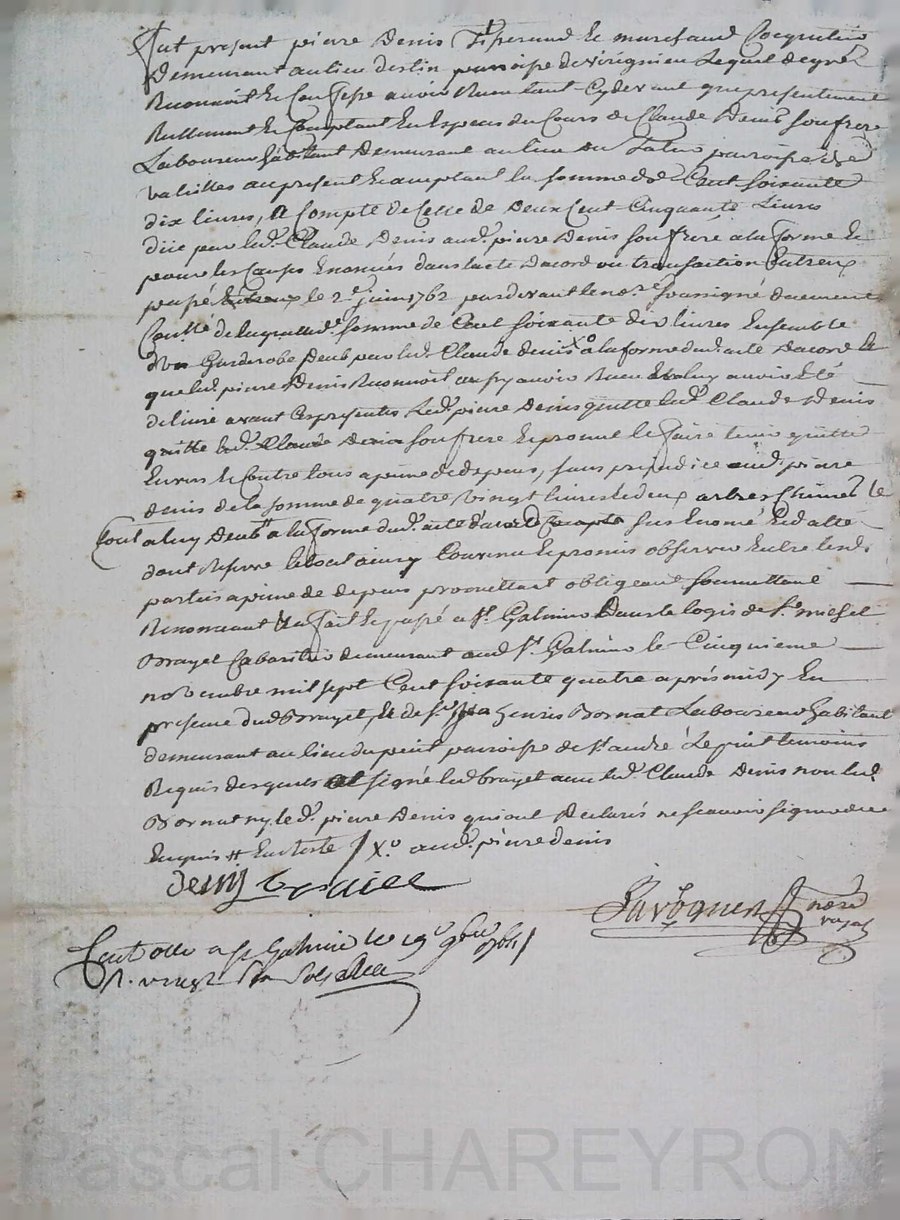 fut present pierre Denis tisserand et marchand coequetier
Demeurant au lieu destin parroisse de virignieu Lequel de gré
Reconnoit et Confesse avoir Receu tant Cydevant que presentement
Reellement et Comptant En Especes du Cours de Claude Denis son frere
Laboureur habitant Demeurant au lieu du paroisse de
valeilles au present et acceptant la somme de Cent soixante
dix livres, A Compte de Celle de Deux Cent Cinquante Livres
düe par led. Claude Denis aud. pierre Denis son frere a la forme Et
pour les Causes Enoncées dans lacte Dacord ou transaction Entreux
passé le 2e juin 1762 pardevant le nore. soussigné duement
Con.llé de laquelled. somme de Cent soixante dix livres Ensemble
dun Garderobe Deub par led. Claude denis Xo a la forme dud. acte Dacord Et
que led. pierre Denis Reconnoit aussy avoir Receu Et luy avoir Eté
delivré avant Ces presentes Led. pierre Denis quitte led. Claude Denis
quitte led. Claude Denis son frere Et promet le faire tenir quitte
Envers Et Contre tous a peine de depens, sans prejudice aud. pierre
denis de la somme de quatre vingt livres Et deux arbres Le
tout a luy Deub a la forme dud. acte dacord sus Enoncé Et datté
dont Reserve le tout ainsy Convenu Et promis observer Entre lesd.
parties a peine de depens promettant obligeant soumettant
Renonceant &a fait Et passé a St. Galmier Dans le logis de Sr. michel
Brayet Cabaretier demeurant aud. St. Galmier le Cinquieme
novembre mil sept Cent soixante quatre aprés midy En
presence dud. Brayet, Et de Sr. Jean henris Bornat Laboureur habitant
demeurant au lieu du peit parroisse de St andré Le puit temoins
Requis desquels a signé led. brayet avec led. Claude Denis non led.
Bornat ny led. pierre Denis qui ont Declarés ne scavoir signer de ce
Enquis H Enteste / Xo aud. pierre denis
denis brayet
Pavognen nore royal
Controllé a St Galmier le 19e 9bre 1764
R. vingt six sols
Pascal CHAREYRON